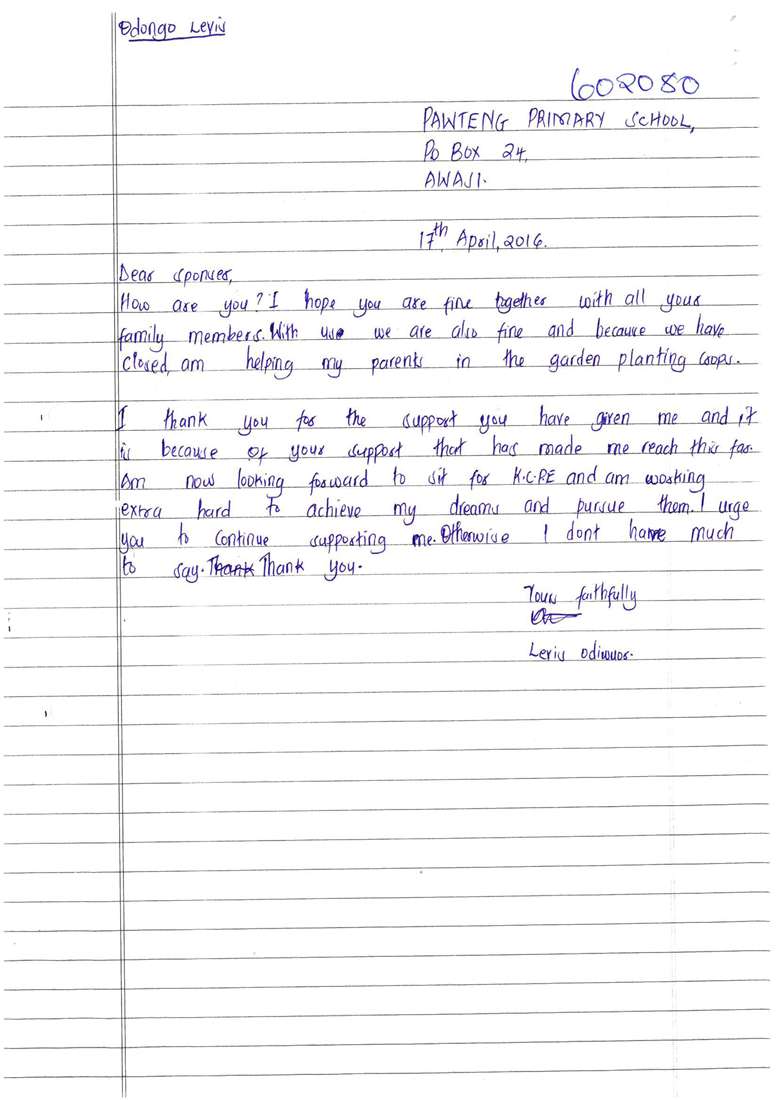 Odongo Levis
602080
PAWTENG PRIMARY SCHOOL,
Po BOX 24,
AWASI.
17th April, 2016.
Dear sponser,
How are you? I hope you are fine together with all your
family members. With us we are also fine and because we have
closed, am helping my parents in the garden planting coops.
I thank you for the support you have given me and it
is because of your support that has made me reach this far.
Am now looking forward to sit for K.C.P.E and am working
extra hard to achieve my dreams and pursue them. I urge
you to continue supporting me. Otherwise I dont have much
to say. Thank Thank you.
Yours faithfully
Levis Odiwuor.